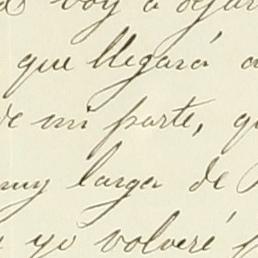 voy a dejar
que llegará a
de mi parte, qu
my larga de
yo volveré p